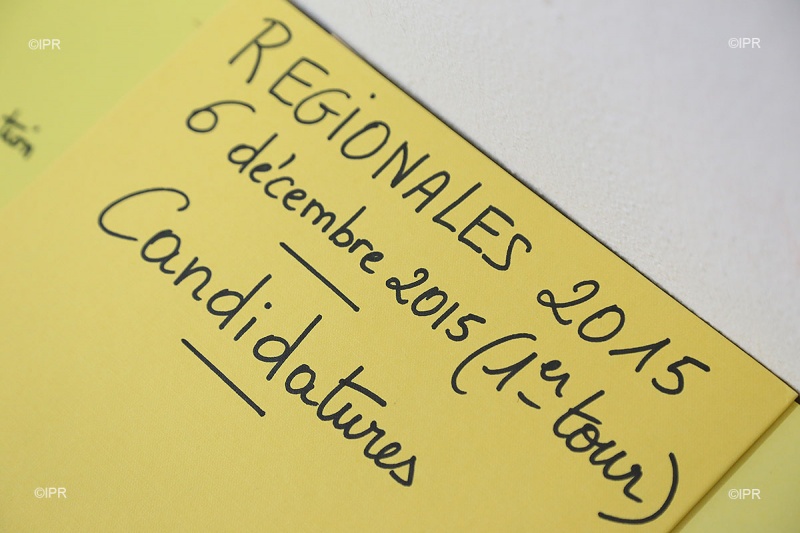 ©IPR
©IPR
REGIONALES 2015
6 décembre 2015 (1er tour)
Candidatures
©IPR
©IPR